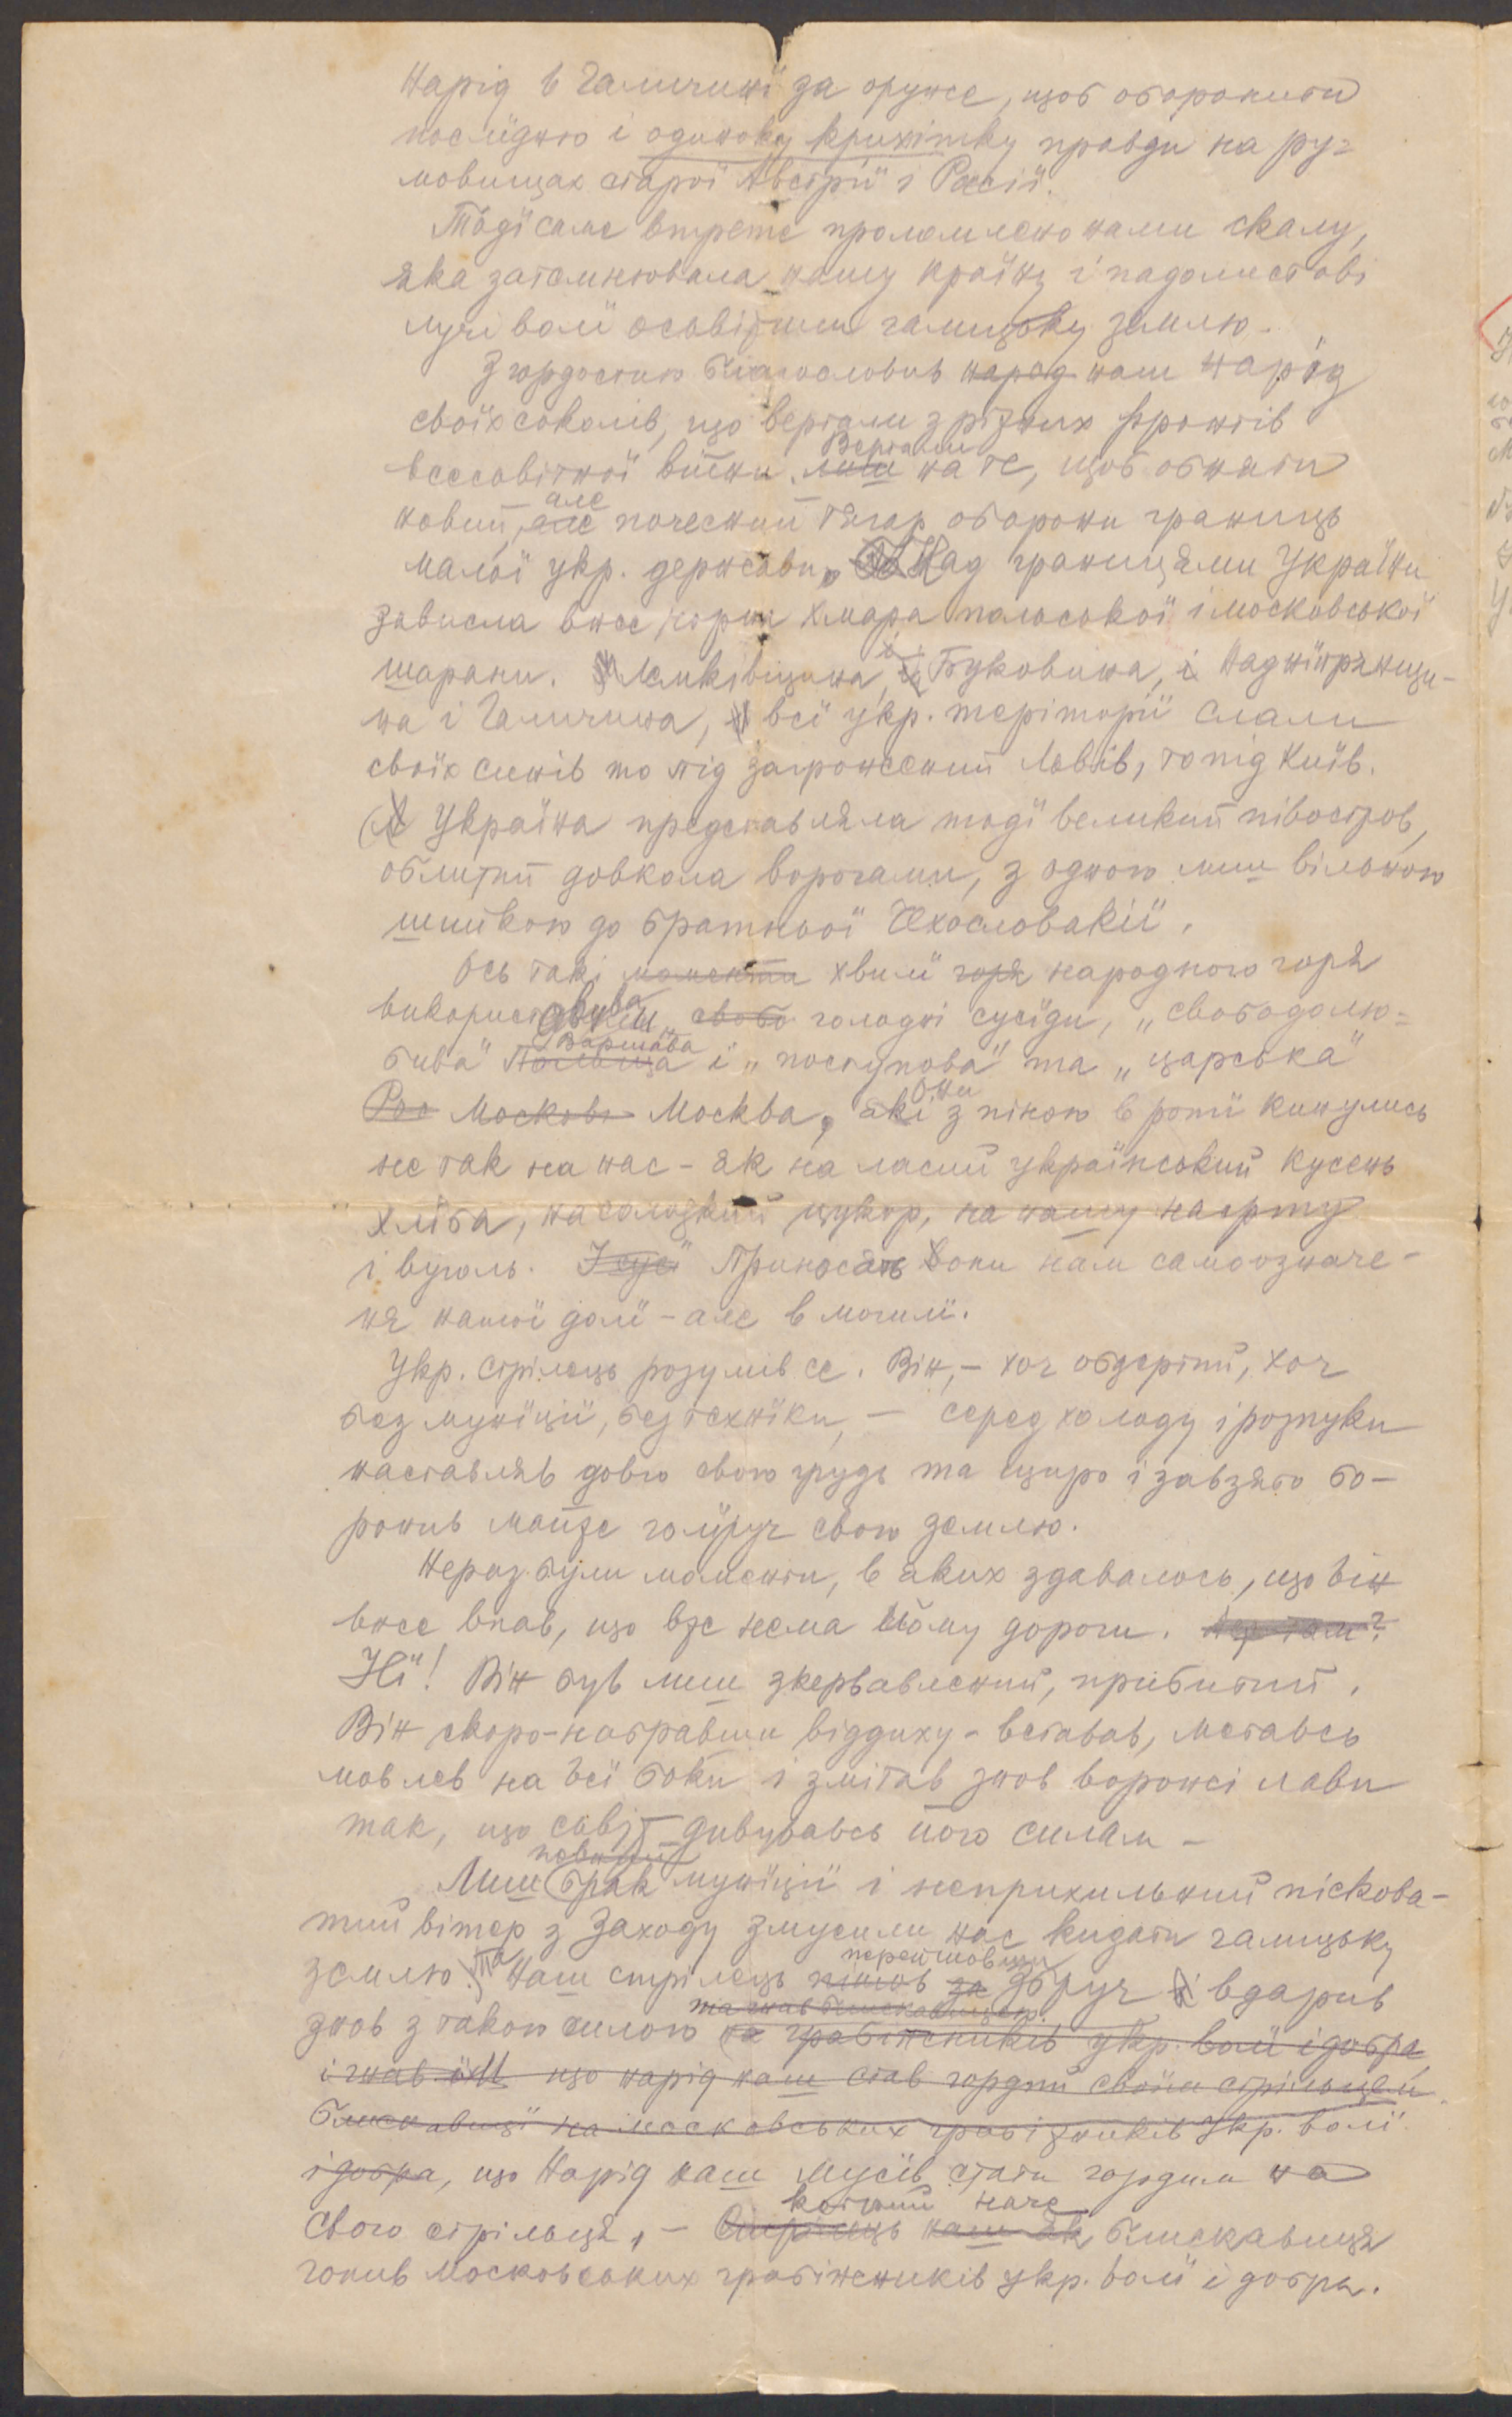 Нарід в Галичині за оружє, щоб оборонити
послїдню і одиноку крихітку правди на ру=
мовищах старої Австрії і Росії.
Тодї саме втретє проломлено нами скалу,
яка затемнювала нашу країну і падолистові
лучі волї осьвітили галицьку землю.
З гордостию благословив народ наш нарід
своїх соколів, що вертали з ріжних фронтів
всесвітної війни. лиш Вертали на те, щоб обняти
новий, але але почесний тягар оборони границь
малої укр. держави. Над границями України
зависла вже чорна хмара польської і московської
шарани. Лемківщина, і Буковина, і Наднїпрянщи-
на і Галичина, всї укр. території слали
своїх синів то під загрожений Львів, то під Київ.
Україна представляла тодї великий півостров,
облитий довкола ворогами, з одною лиш вільною
шийкою до братньої Чехословакії.
Ось такі моменти хвилї горя народного горя
використовували свобо голодні сусїди, „свободолю=
бива" Польща Варшава і „поступова" та „царська"
Рос Москов Москва, які Они з піною в ротї кинулись
не так на нас - як на ласий український кусень
хлїба, на солодкий цукор, на нашу нафту
і вуголь. Приносять вони нам самоозначе-
ня нашої долї - але в могилї.
Укр. Стрілець розумів се. Він, - хоч обдертий, хоч
без мунїції, без технїки, - серед холоду і розпуки
наставляв довго свою грудь та щиро і завзято бо-
ронив майже голїруч свою землю.
Нераз були моменти, в яких здавалось, що він
вже впав, що вже нема йому дороги.
Нї! Він був лиш зкервавлений, прибитий.
Він скоро - набравши віддиху - вставав, метавсь
мов лев на всї боки і змітав знов ворожі лави
так, що сьвіт дивувавсь його силам -
Лиш повний брак мунїції і неприхильний піскова-
тий вітер з Заходу змусили нас кидати галицьку
землю. Та Наш стрілець пішов за перейшовши Збруч і вдарив
знов з такою силою та гнав блискавицею на грабіжників укр. волї і добра
і гнав їх що нарід наш став гордий своїм стрільцем
блискавицї на московських грабіжників укр. волї
і добра, що Нарід наш мусїв стати гордим на
свого стрільця, - Стрілець наш як котрий наче блискавиця
гонив московських грабіжників укр. волї і добра.